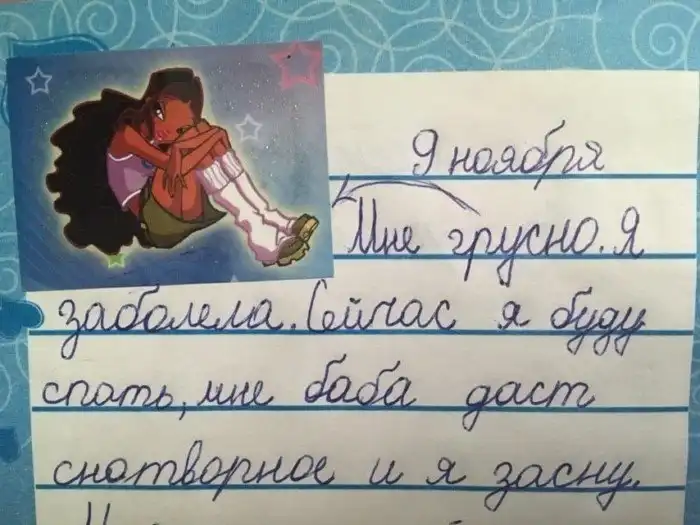 9 ноября
Мне грусно. Я
заболела. Сейчас я буду
спать, мне баба даст
снотворное и я засну.